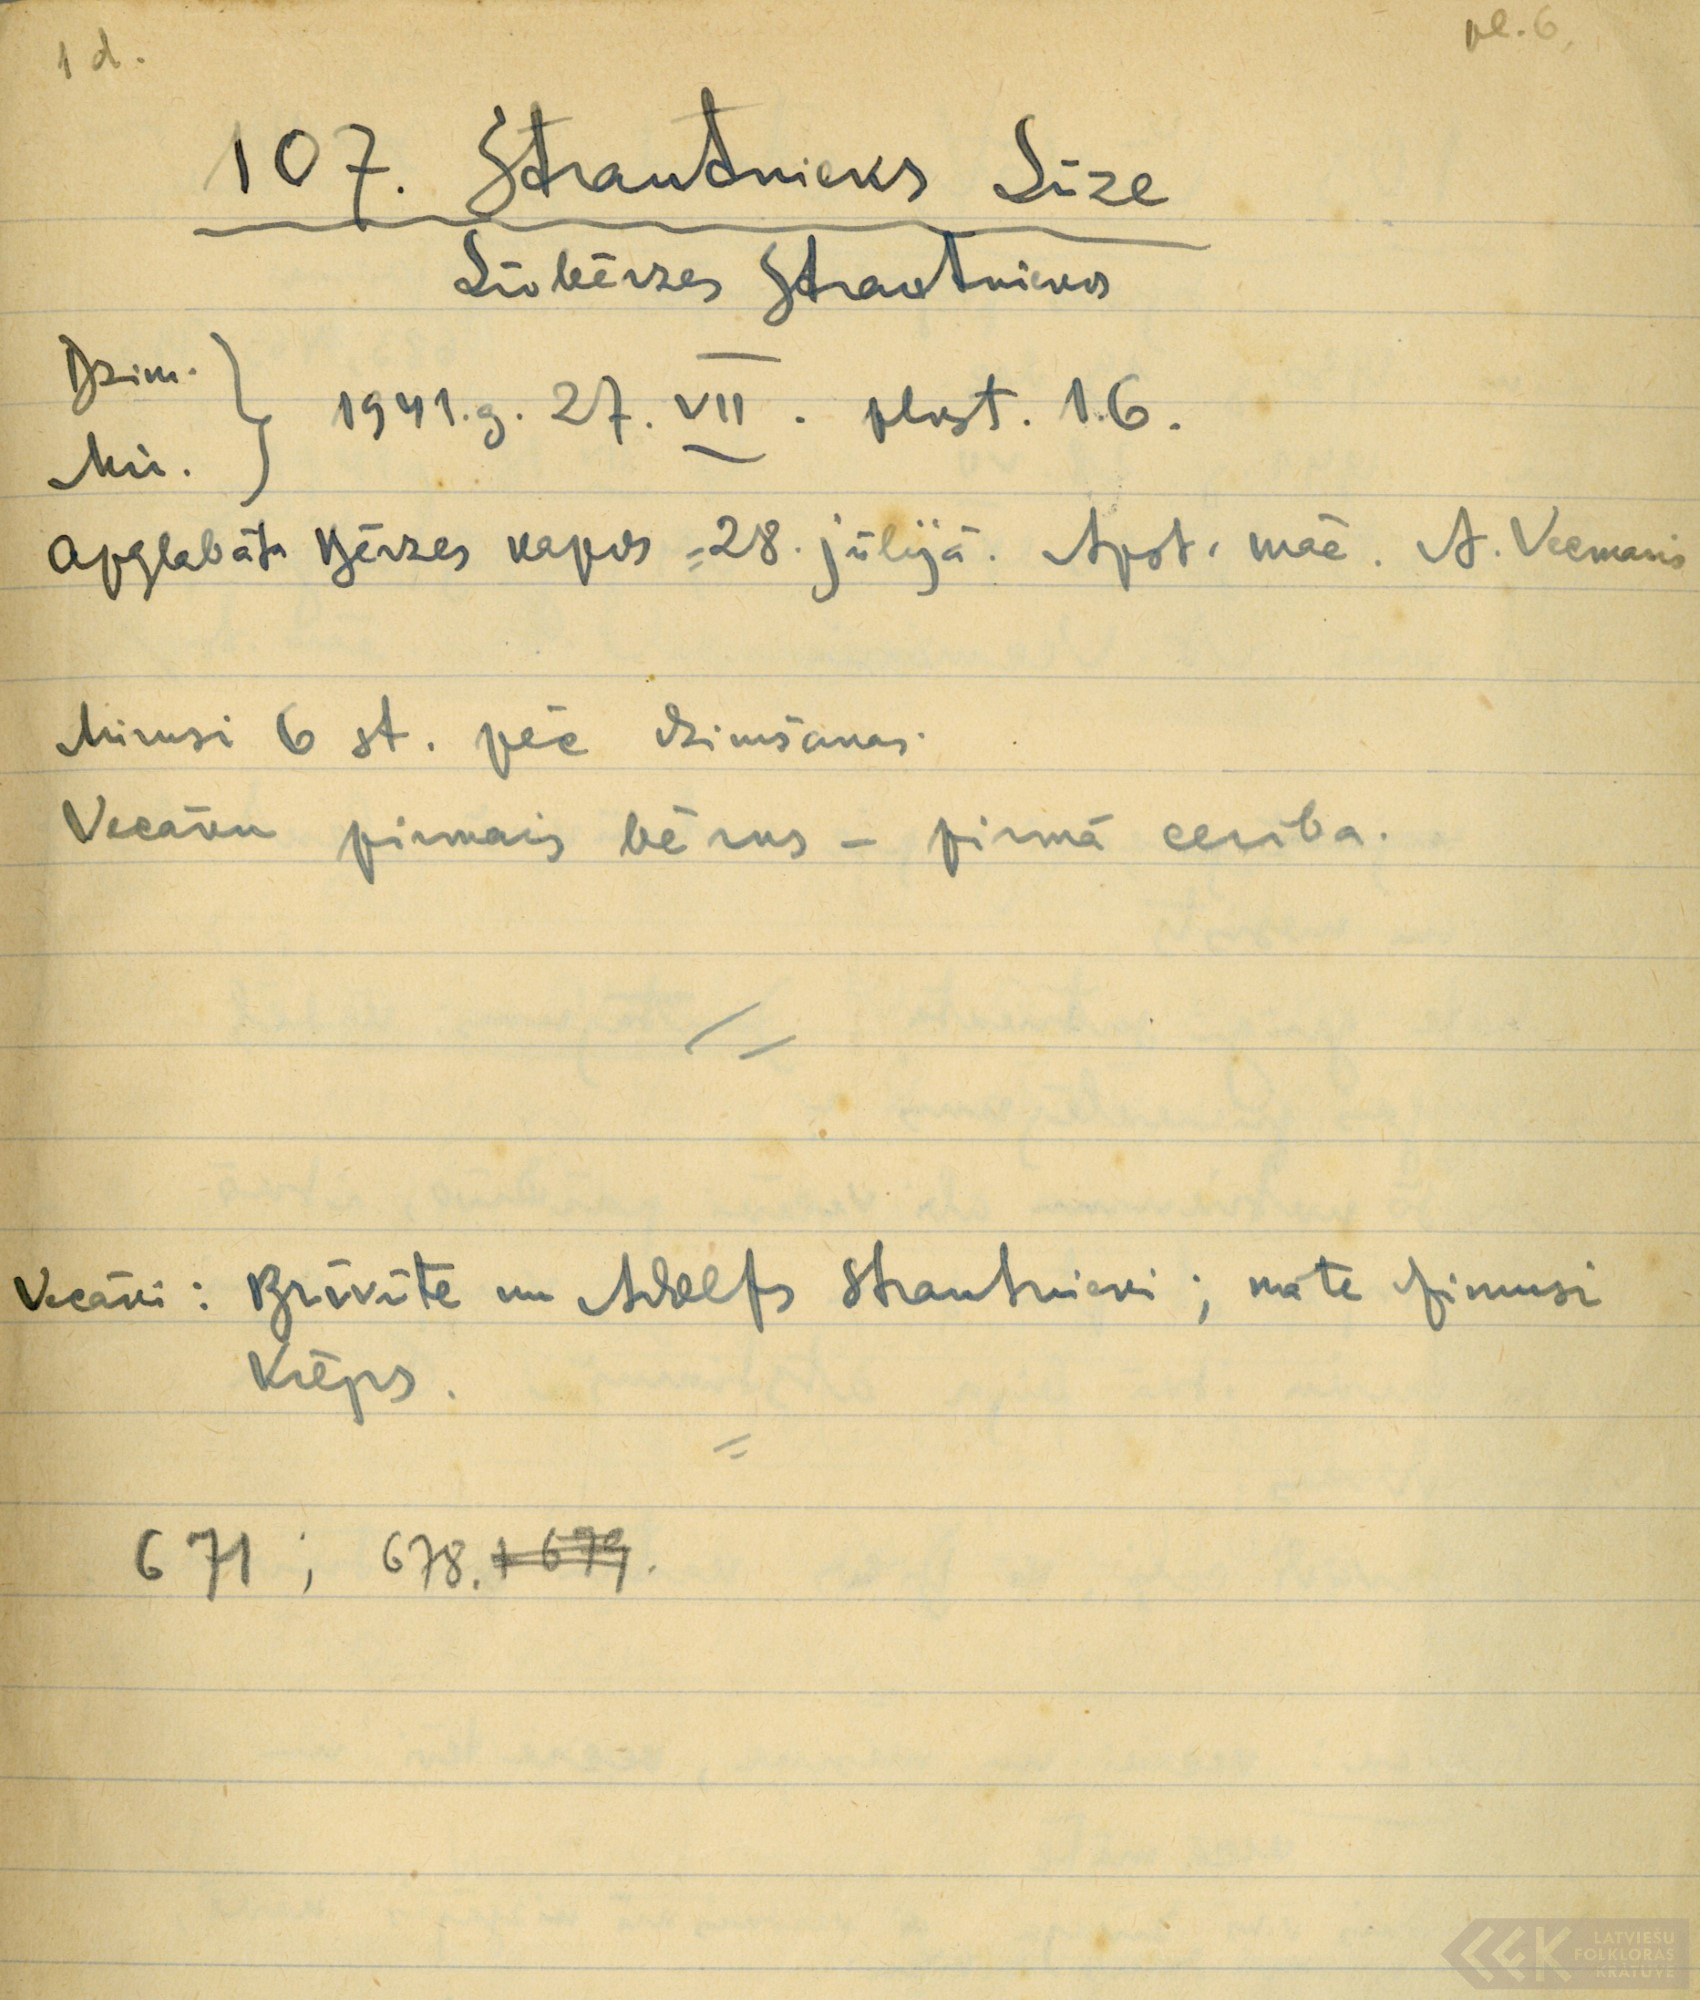 1 d.
pl. 6.
107. Strautnieks Līze
Līvbērzes Strautnieks
Dzim.
Mir.
1941.g. 27. VII. plkst. 1.6.
Apglabāta Bērzes kapos = 28. jūlijā. Apst. māc. A. Veemanis
Mirusi 6 st. pēc dzimšanas.
Vecāku pirmais bērns – pirmā cerība.
Vecāki: Brīvīte un Adolfs Strautnieki; māte dzimusi
Krēps.
=
671; 678. + 679.
LATVIEŠU
FOLKLORAS
KRĀTUVE